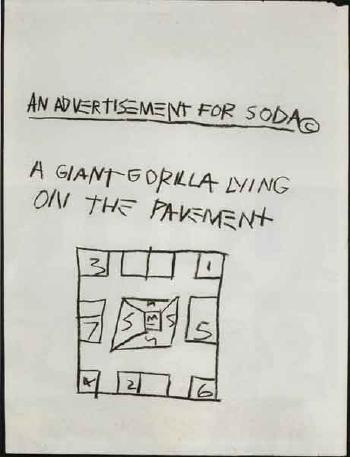 AN ADVERTISEMENT FOR SODA©
A GIANT GORILLA LYING
ON THE PAVEMENT
3 1
7 S S 5
S
4 2 6